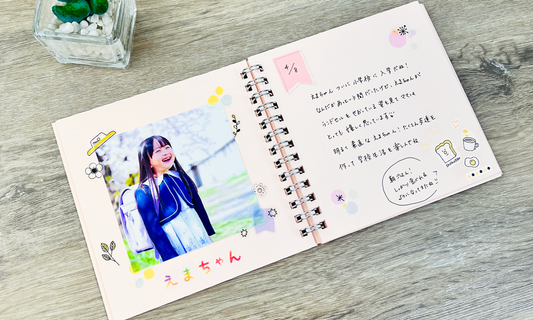 えまちゃん
4/8
えまちゃん ついに小学校に入学だね!
なんだかあっという間だったけど、えまちゃんが
ランドセルをせおっている姿を見て ママは
とても嬉しく思っています
明るく素直なえまちゃん!たくさん友達を
作って 学校生活を楽しんでね
朝ごはん!
しっかり食べれる
ようになってきたね